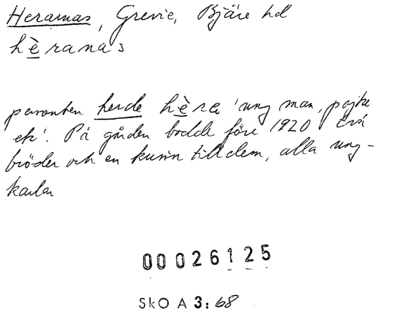 Herarnas, Grevie, Bjäre hd
hèranas
paronten herde hèra 'ung man, pojke
etc'. På gården bodde före 1920 två
bröder och en kusin till dem, alla ung-
karlar
00026125
SkO A 3:68